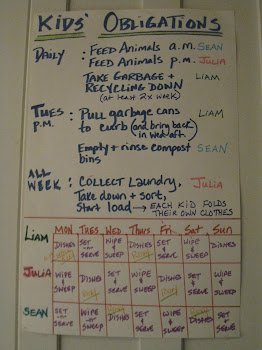 KIDS' OBLIGATIONS
DAILY : FEED ANIMALS a.m. SEAN
: FEED ANIMALS p.m. JULIA
TAKE GARBAGE + LIAM
RECYCLING DOWN
(at least 2x week)
TUES P.M. : Pull garbage cans LIAM
to curb (and bring back)
in Wed. aft.
Empty + rinse compost SEAN
bins
ALL WEEK : COLLECT Laundry, JULIA
Take down + sort,
Start load → EACH KID FOLDS
THEIR OWN CLOTHES
MON TUES WED THURS Fri SAT SUN
LIAM DISHES SET + SERVE WIPE + SWEEP DISHES SET + SERVE WIPE + SWEEP DISHES
JULIA WIPE + SWEEP DISHES SET + SERVE WIPE + SWEEP DISHES SET + SERVE WIPE + SWEEP
SEAN SET + SERVE WIPE + SWEEP DISHES SET + SERVE WIPE + SWEEP DISHES SET + SERVE